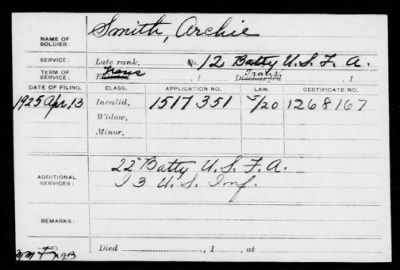 NAME OF SOLDIER: Smith, Archie
SERVICE: Late rank, No. 12 Batty U.S.F.A.
TERM OF SERVICE: Trans , 1 , 1
DATE OF FILING. CLASS. APPLICATION NO. LAW. CERTIFICATE NO.
1925 Apr. 13 Invalid, 1517 351 5/20 1268167
Widow,
Minor,
ADDITIONAL SERVICES: 22" Batty U.S.F.A.
I 3 U.S. Inf.
REMARKS:
Died , 1 , at